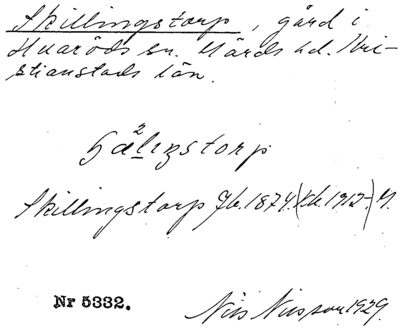 Skillingstorp, gård i
Huaröds sn. Gärds hd. Kri-
stianstads län.
Skillingstorp Jb. 1874. (Kb. 1912-) M.
Nr 5332.
Nils Nilsson 1929.